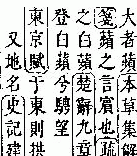 大者蘋本草集解
箋蘋之言賓也疏
之白蘋楚辭九章
登白蘋兮騁望
東京賦于東則拱
又地名史記建